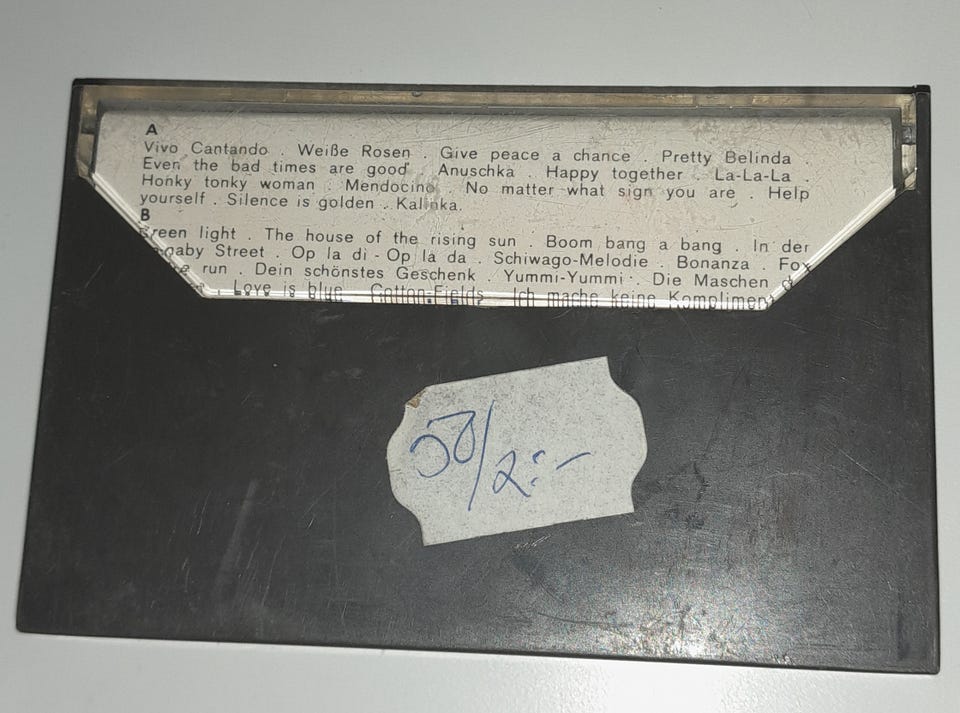 A
Vivo Cantando . Weiße Rosen . Give peace a chance . Pretty Belinda .
Even the bad times are good . Anuschka . Happy together . La-La-La .
Honky tonky woman . Mendocino . No matter what sign you are . Help
yourself . Silence is golden . Kalinka.
B
Green light . The house of the rising sun . Boom bang a bang . In der
Street . Op la di - Op la da . Schiwago-Melodie . Bonanza . Fox
run . Dein schönstes Geschenk . Yummi-Yummi . Die Maschen
. Love is blue . Cotton-Fields . Ich mache keine Kompliment
/2:-